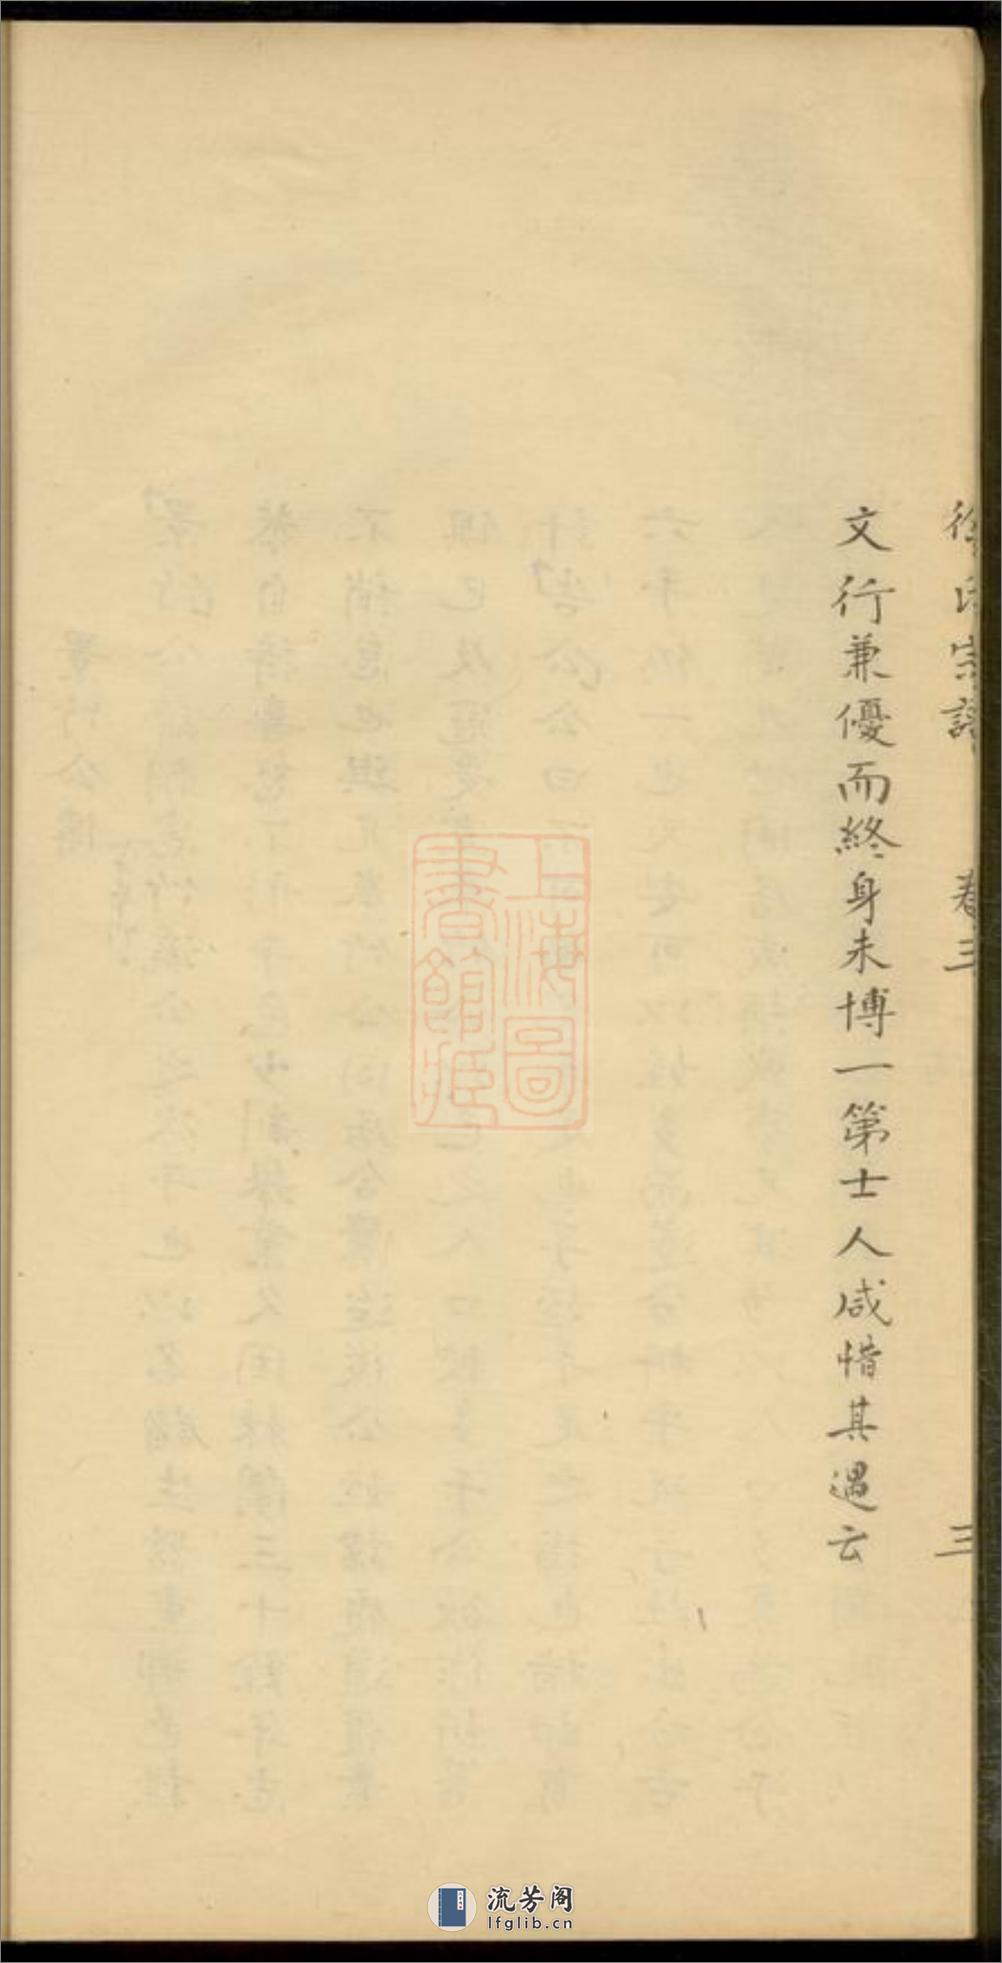 徐氏宗譜 卷三 三
文行兼優而終身未博一第士人咸惜其遇云
上海圖書館藏
流芳阁
lfglib.cn